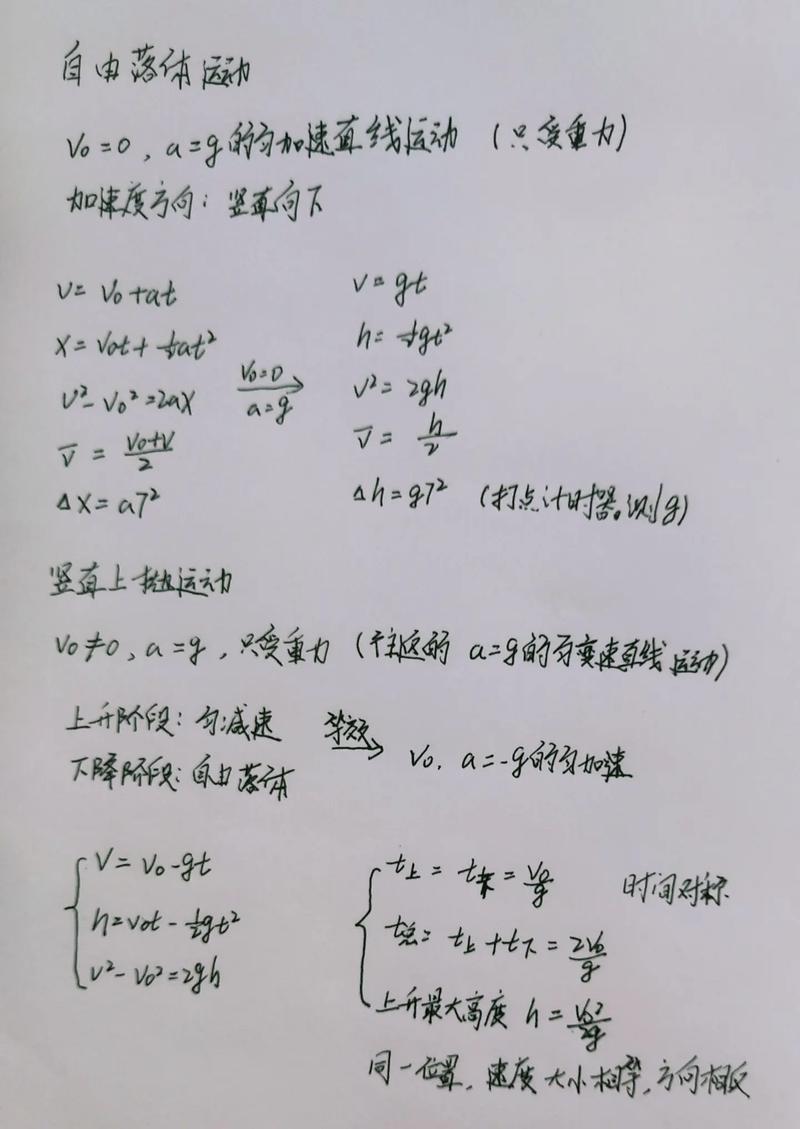 自由落体运动
v₀=0，a=g的匀加速直线运动（只受重力）
加速度方向：竖直向下
v=v₀+at
x=v₀t+½at²
v²-v₀²=2ax
v̄=(v₀+v)/2
Δx=aT²
v₀=0
a=g
v=gt
h=½gt²
v²=2gh
v̄=h/2
Δh=gT²（打点计时器测g）
竖直上抛运动
v₀≠0，a=g，只受重力（往返的 a=g的匀变速直线运动）
上升阶段：匀减速
下降阶段：自由落体
等效
v₀，a=-g的匀加速
v=v₀-gt
h=v₀t-½gt²
v²-v₀²=2gh
t上=t下=v₀/g 时间对称
t总=t上+t下=2v₀/g
上升最大高度 h=v₀²/2g
同一位置，速度大小相等，方向相反